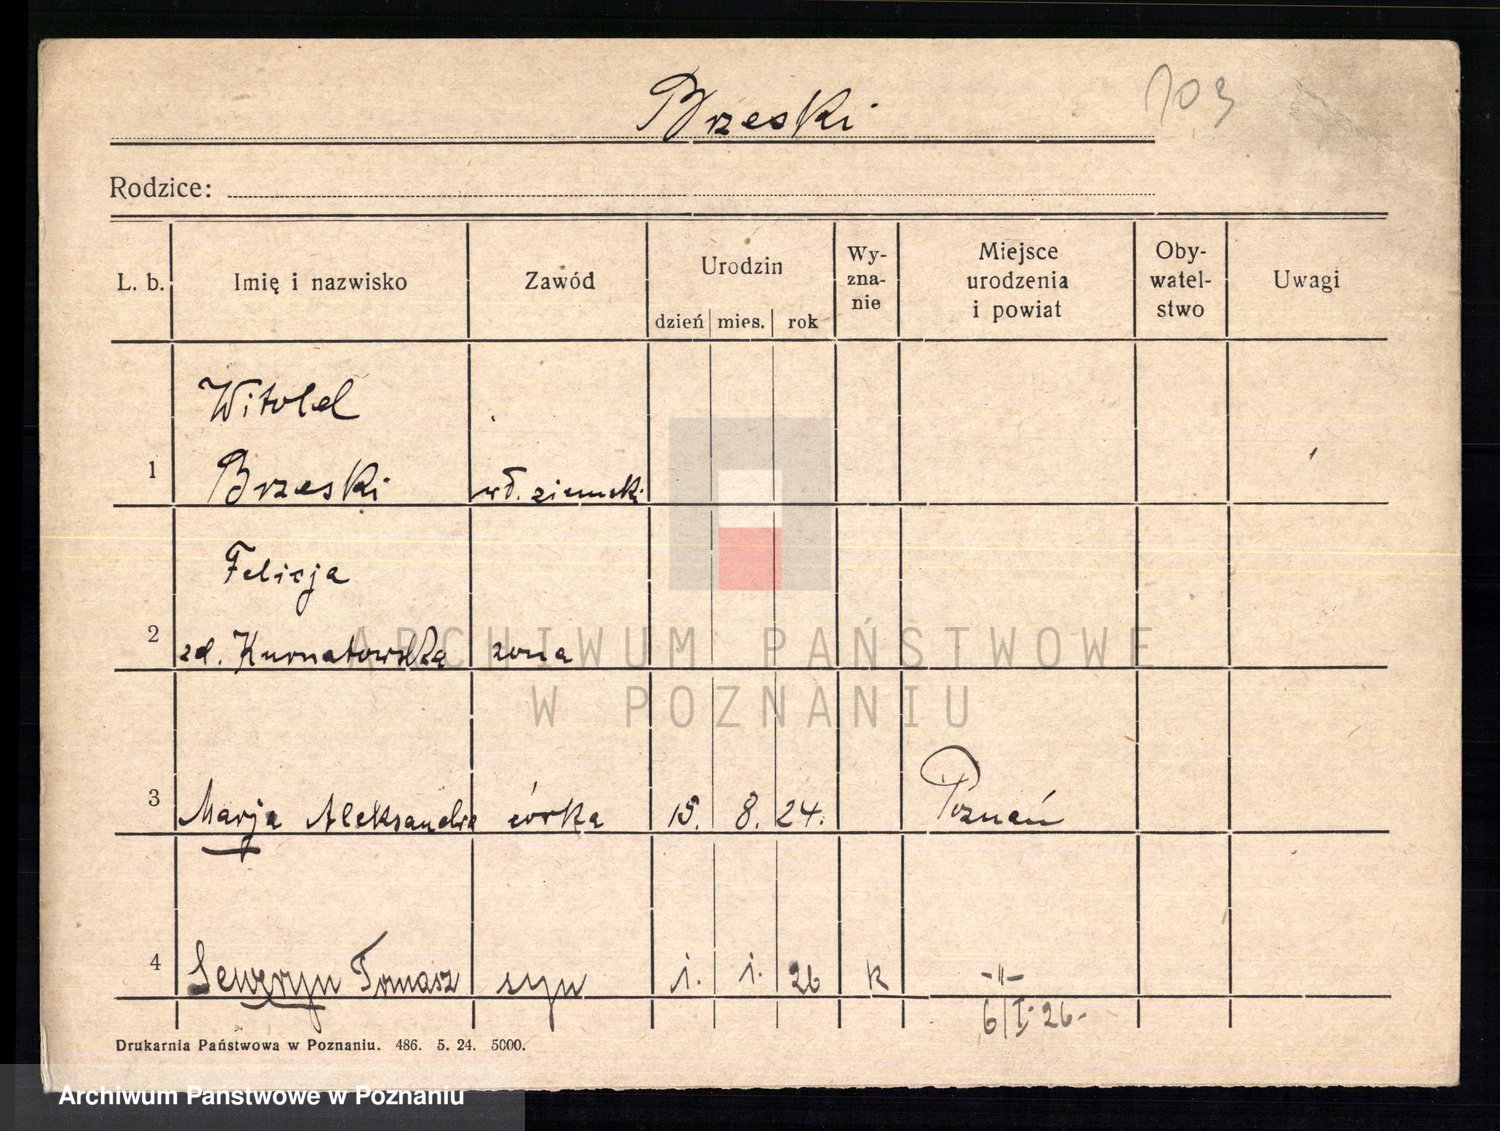 Brzeski
103
Rodzice:
L. b. Imię i nazwisko Zawód Urodzin dzień mies. rok Wy-zna-nie Miejsce urodzenia i powiat Oby-watel-stwo Uwagi
Witold
1 Brzeski wł. ziemski
Felicja
2 zd. Kurnatowska żona
3 Marja Aleksandra córka 15. 8. 24. Poznań
4 Seweryn Tomasz syn 1. 1. 26 k -"-
6/I. 26.
Drukarnia Państwowa w Poznaniu. 486. 5. 24. 5000.
ARCHIWUM PAŃSTWOWE
W POZNANIU
Archiwum Państwowe w Poznaniu